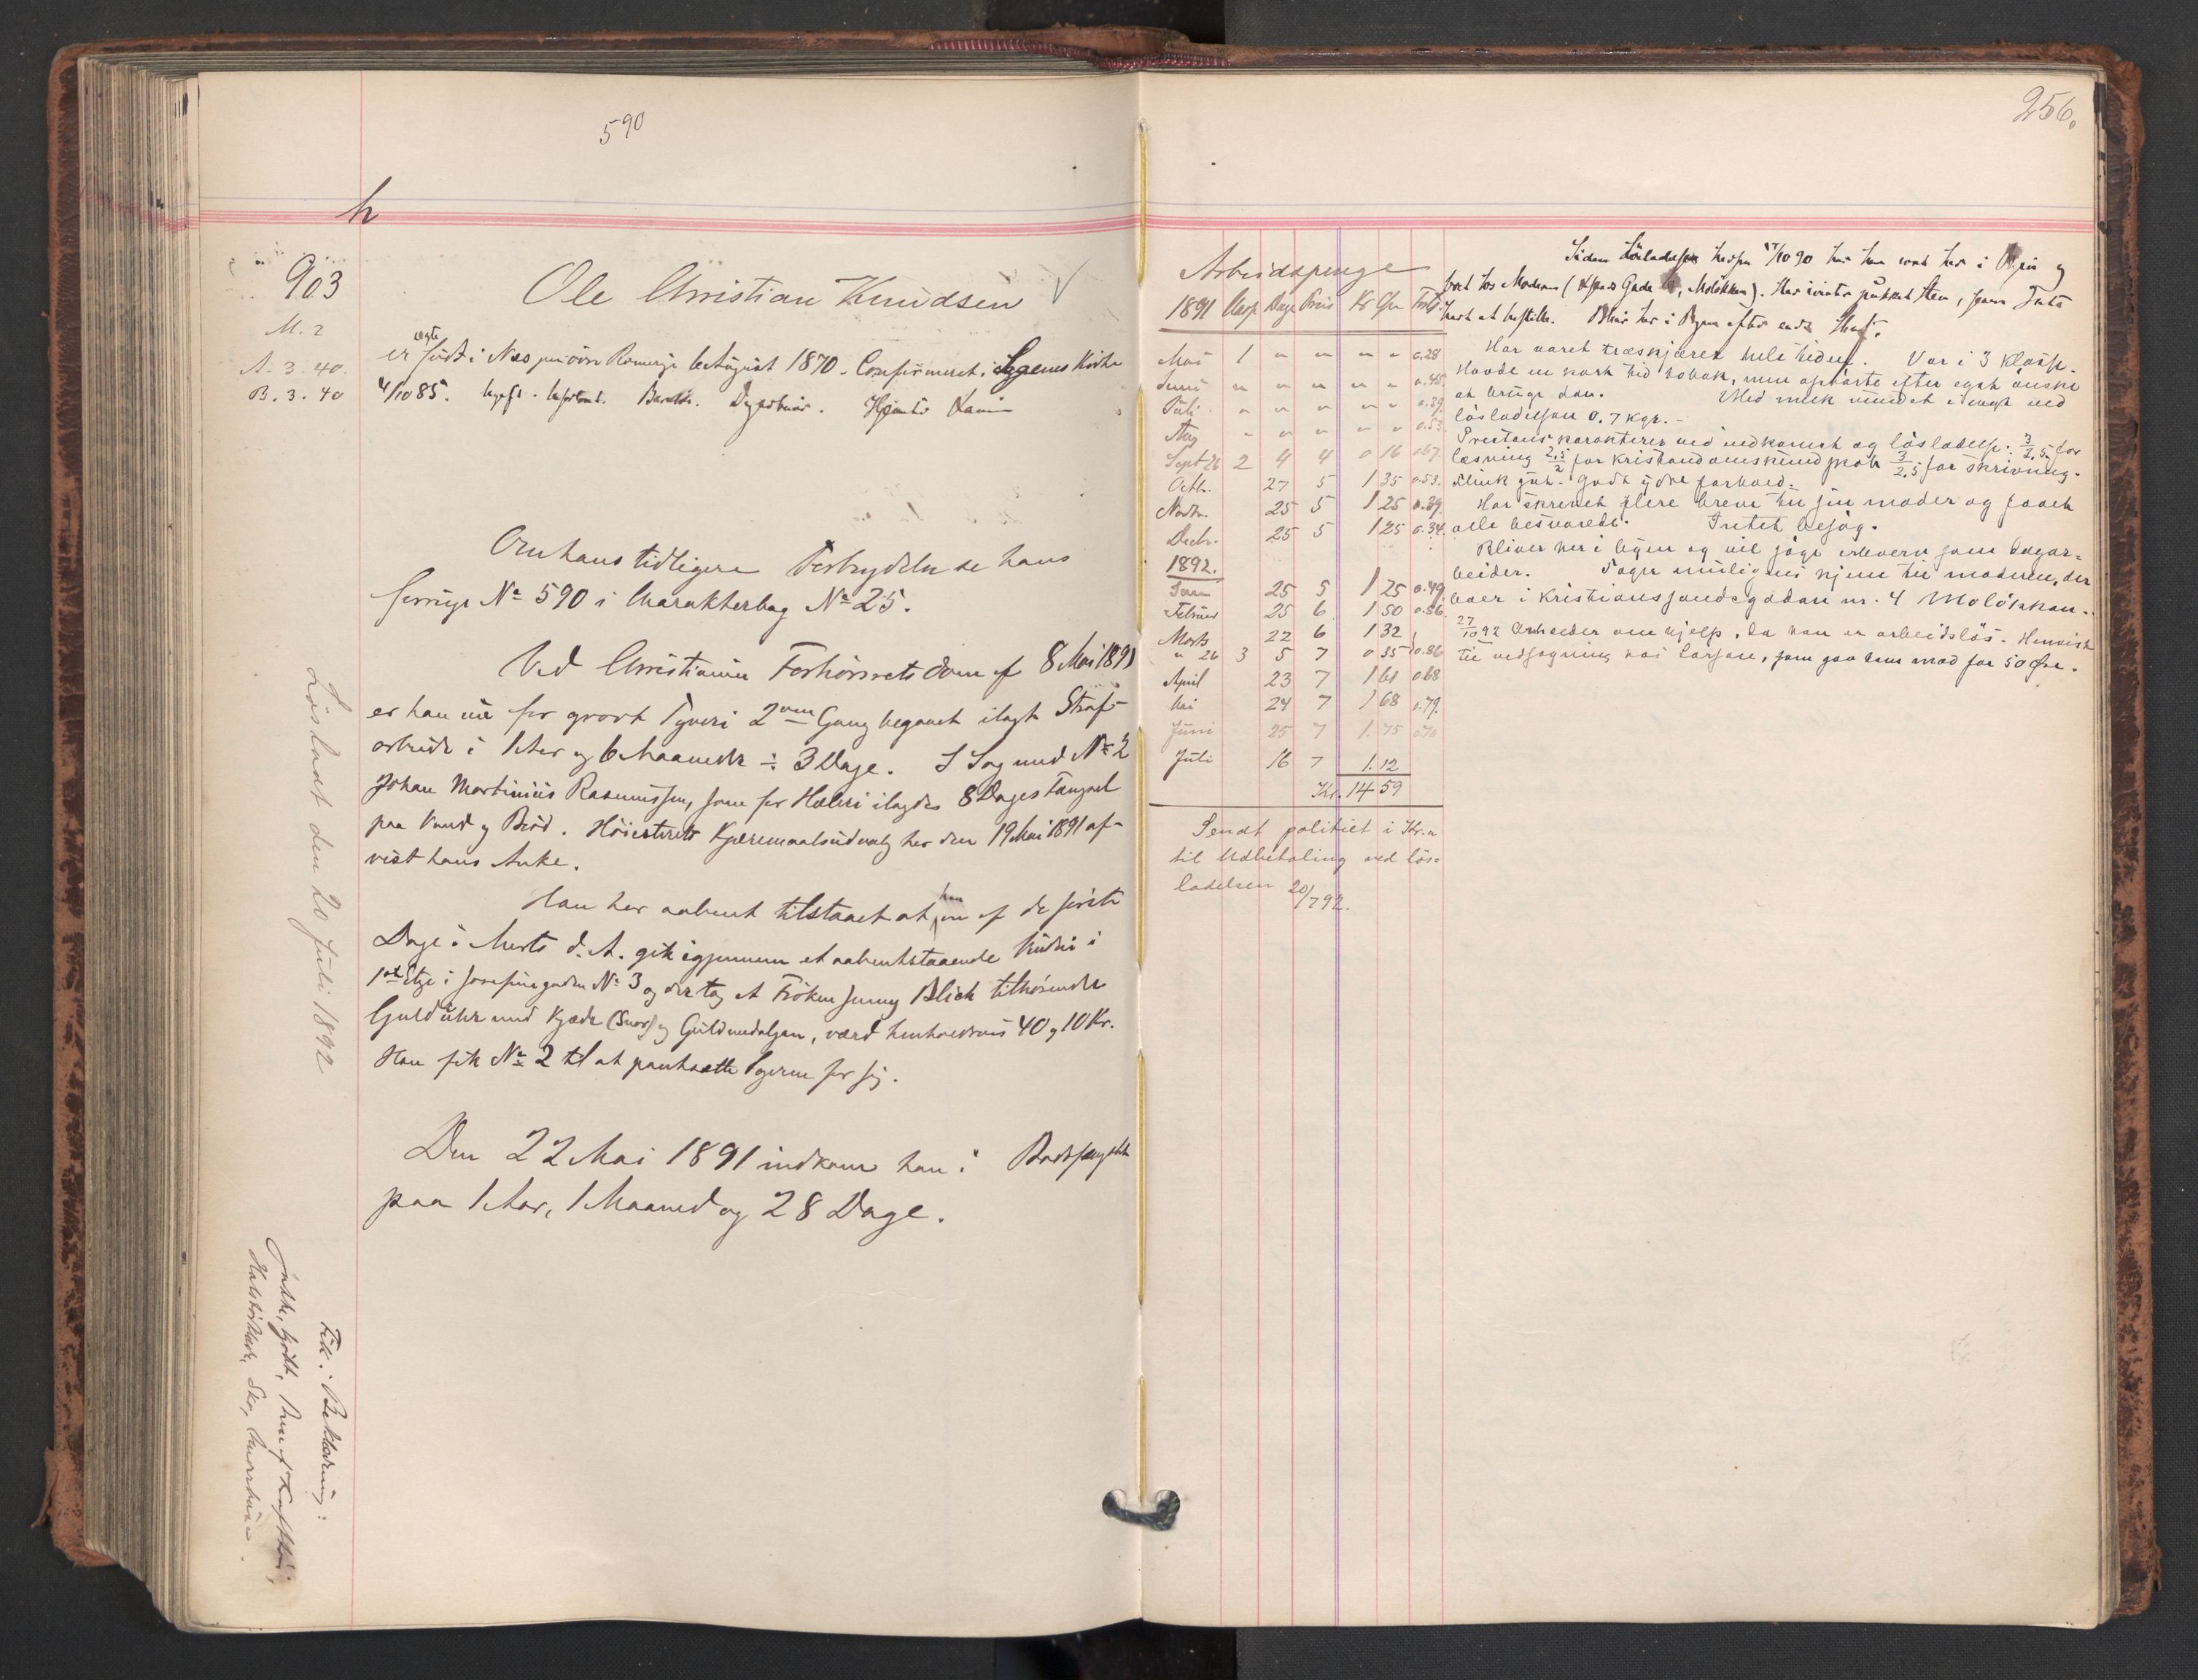 590
h
903
M. 2
A. 3. 40.
B. 3. 40
Ole Christian Knudsen
er ægte født i Næs paa øvre Romerige 6 August 1870. Confirmeret i Sagenes Kirke
4/10 85. Ugift.
Om hans tidligere Forbrydelser se hans
forrige No 590 i Charakterbog No 25.
Ved Christiania Forhørsrets dom af 8 Mai 1891
er han nu for grovt Tyveri 2den Gang begaaet ilagt Straf-
arbeide i 1 Aar og 6 Maaneder ÷ 3 Dage. I Sag med No 2
Johan Martinius Rasmussen, som for Hæleri ilagdes 8 Dages Fængsel
paa Vand og Brød. Høiesterets Kjæremaalsudvalg har den 19 Mai 1891 af-
vist hans Anke.
Han har aabent tilstaaet at han en af de første
Dage i Marts d. A. gik igjennem et aabentstaaende Vindu i
1ste Etge i Josefinegaden No 3 og der tog et Frøken Jenny Blich tilhørende
Gulduhr med Kjæde (Snor) og Guldmedaljon, værd henholdsvis 40 og 10 Kr.
Han fik No 2 til at pantsætte Tingene for sig.
Den 22 Mai 1891 indkom han i Bodsfængslet
paa 1 Aar, 1 Maaned og 28 Dage.
Løsladt den 20 Juli 1892
Fik: Beklædning:
Halstørklæde, Sko,
256.
Arbeidspenge
1891 Dage Pris Kr Øre
Mai 1 " " " " 0.28
Juni " " " " " 0.48
Juli " " " " " 0.39
Aug " " " " " 0.53
Sept 26 2 4 4 0 16 0.67
Octb. 27 5 1 35 0.53.
Novbr. 25 5 1 25 0.39.
Decbr. 25 5 1 25 0.34.
1892.
Janr 25 5 1 25 0.49.
Februar 25 6 1 50 0.56.
Marts 22 6 1 32
" 26 3 5 7 0 35 0.86
April 23 7 1 61 0.68
Mai 24 7 1 68 0.79.
Juni 25 7 1.75 0.70
Juli 16 7 1.12
Kr. 14 59
Sendt politiet i Kr.a
til Udbetaling ved løs-
ladelsen 20/7 92.
Siden Løsladelsen herfra 17/10 90 har han været her i Byen og
boet hos Moderen Gade, Moløkken). Har pukket Sten, som Fruts
havt at bestille. Blir her i Byen efter endt Straf.
Har været træskjærer hele tiden. Var i 3 klasse.
Havde en kort tid tobak, men ophørte efter eget ønske
at bruge den. Med melk mindet i vægt ved
løsladelsen 0.7 kgr. -
Prestens karakterer ved indkomst og løsladelse: 3/2.5 for
læsning 2.5/2 for kristendomskundskab 3/2.5 for skrivning.
Flink gut. Godt ydre forhold.
Har skrevet flere breve til sin moder og faaet
alle besvarede. Intet besøg.
Bliver her i byen og vil søge erhverv som dagar-
beider. Tager muligens hjem til moderen, der
boer i Kristianssandsgaden nr. 4 Moløkken.
27/10 92 Anholder om hjelp, da han er arbeidsløs. Henvist
til vedsagning hos Larsen, som gav ham mad for 50 Øre.